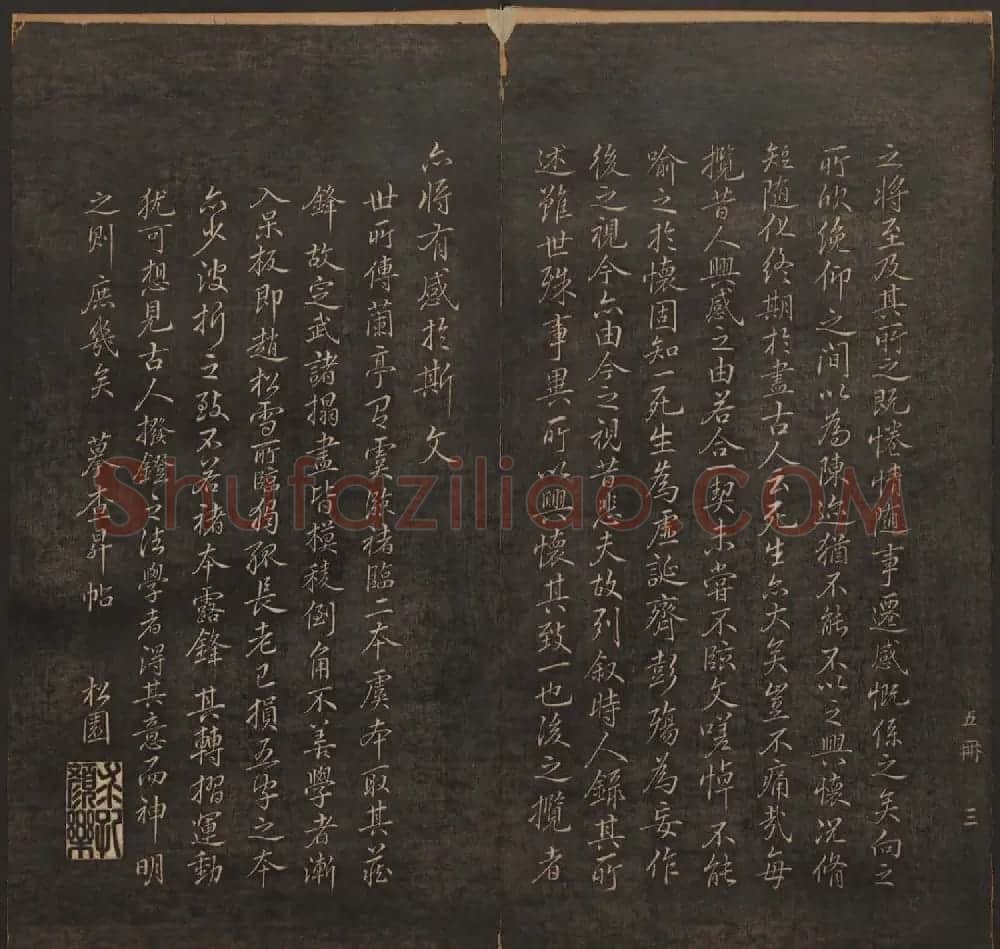 之將至及其所之既惓情隨事遷感慨係之矣向之
所欣俛仰之間以為陳迹猶不能不以之興懷況脩
短隨化終期於盡古人云死生亦大矣豈不痛哉每
攬昔人興感之由若合一契未嘗不臨文嗟悼不能
喻之於懷固知一死生為虛誕齊彭殤為妄作
後之視今亦由今之視昔悲夫故列敘時人錄其所
述雖世殊事異所以興懷其致一也後之攬者
亦將有感於斯文
世所傳蘭亭有虞永褚臨二本虞本取其藏
鋒故定武諸搨盡皆模稜倒角不善學者漸
入呆板即趙松雪所臨獨孤長老已損五字之本
亦少波折之致不若褚本露鋒其轉摺運動
猶可想見古人撥鐙之法學者得其意而神明
之則庶幾矣 摹查昇帖 松園
五冊 三
Shufaziliao.COM